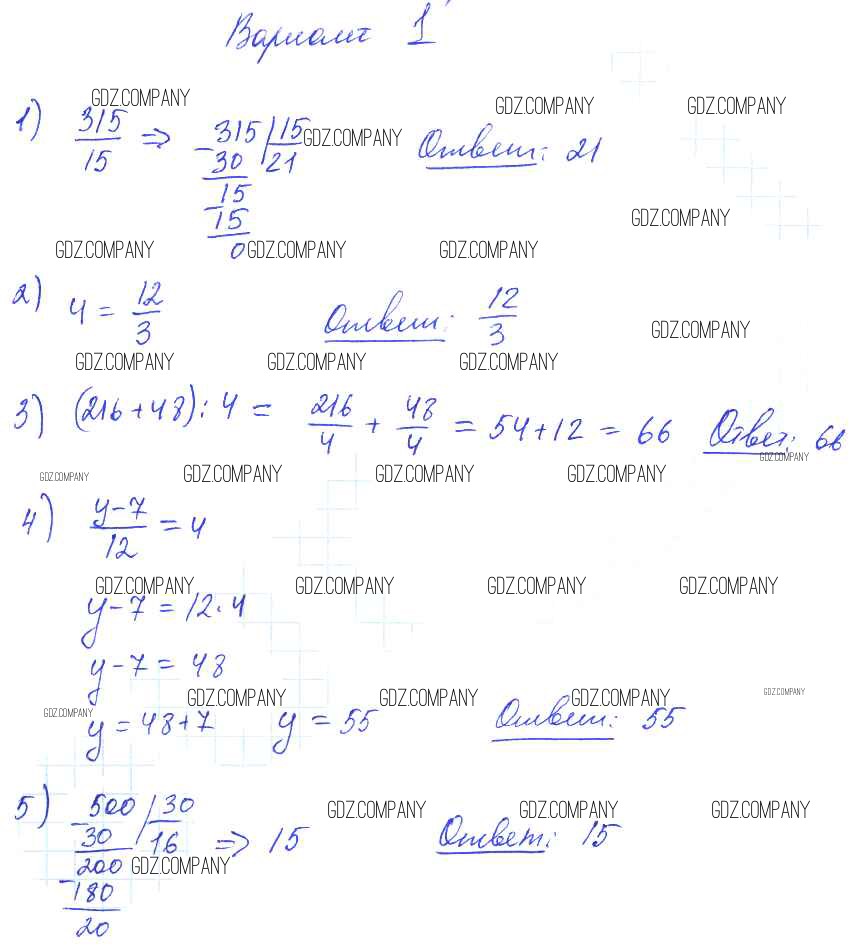 Вариант 1
GDZ.COMPANY GDZ.COMPANY GDZ.COMPANY
1) 315/15 => 315 | 15 GDZ.COMPANY Ответ: 21
- 30 | 21
15
- 15
0
GDZ.COMPANY
GDZ.COMPANY GDZ.COMPANY GDZ.COMPANY
2) 4 = 12/3 Ответ: 12/3
GDZ.COMPANY
GDZ.COMPANY GDZ.COMPANY GDZ.COMPANY
3) (216 + 48) : 4 = 216/4 + 48/4 = 54 + 12 = 66 Ответ: 66
GDZ.COMPANY
GDZ.COMPANY GDZ.COMPANY GDZ.COMPANY GDZ.COMPANY
4) y-7/12 = 4
GDZ.COMPANY GDZ.COMPANY GDZ.COMPANY GDZ.COMPANY
y - 7 = 12 · 4
y - 7 = 48
GDZ.COMPANY GDZ.COMPANY GDZ.COMPANY GDZ.COMPANY
GDZ.COMPANY
y = 48 + 7 y = 55 Ответ: 55
5) - 500 | 30
30 | 16 => 15 Ответ: 15
GDZ.COMPANY GDZ.COMPANY GDZ.COMPANY
200 GDZ.COMPANY
- 180
20